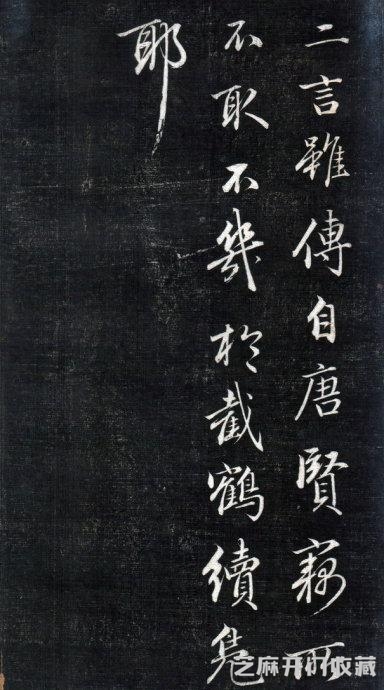 二言雖傳自唐賢竊所
不取不幾於截鶴續鳧
耶
芝麻开门收藏